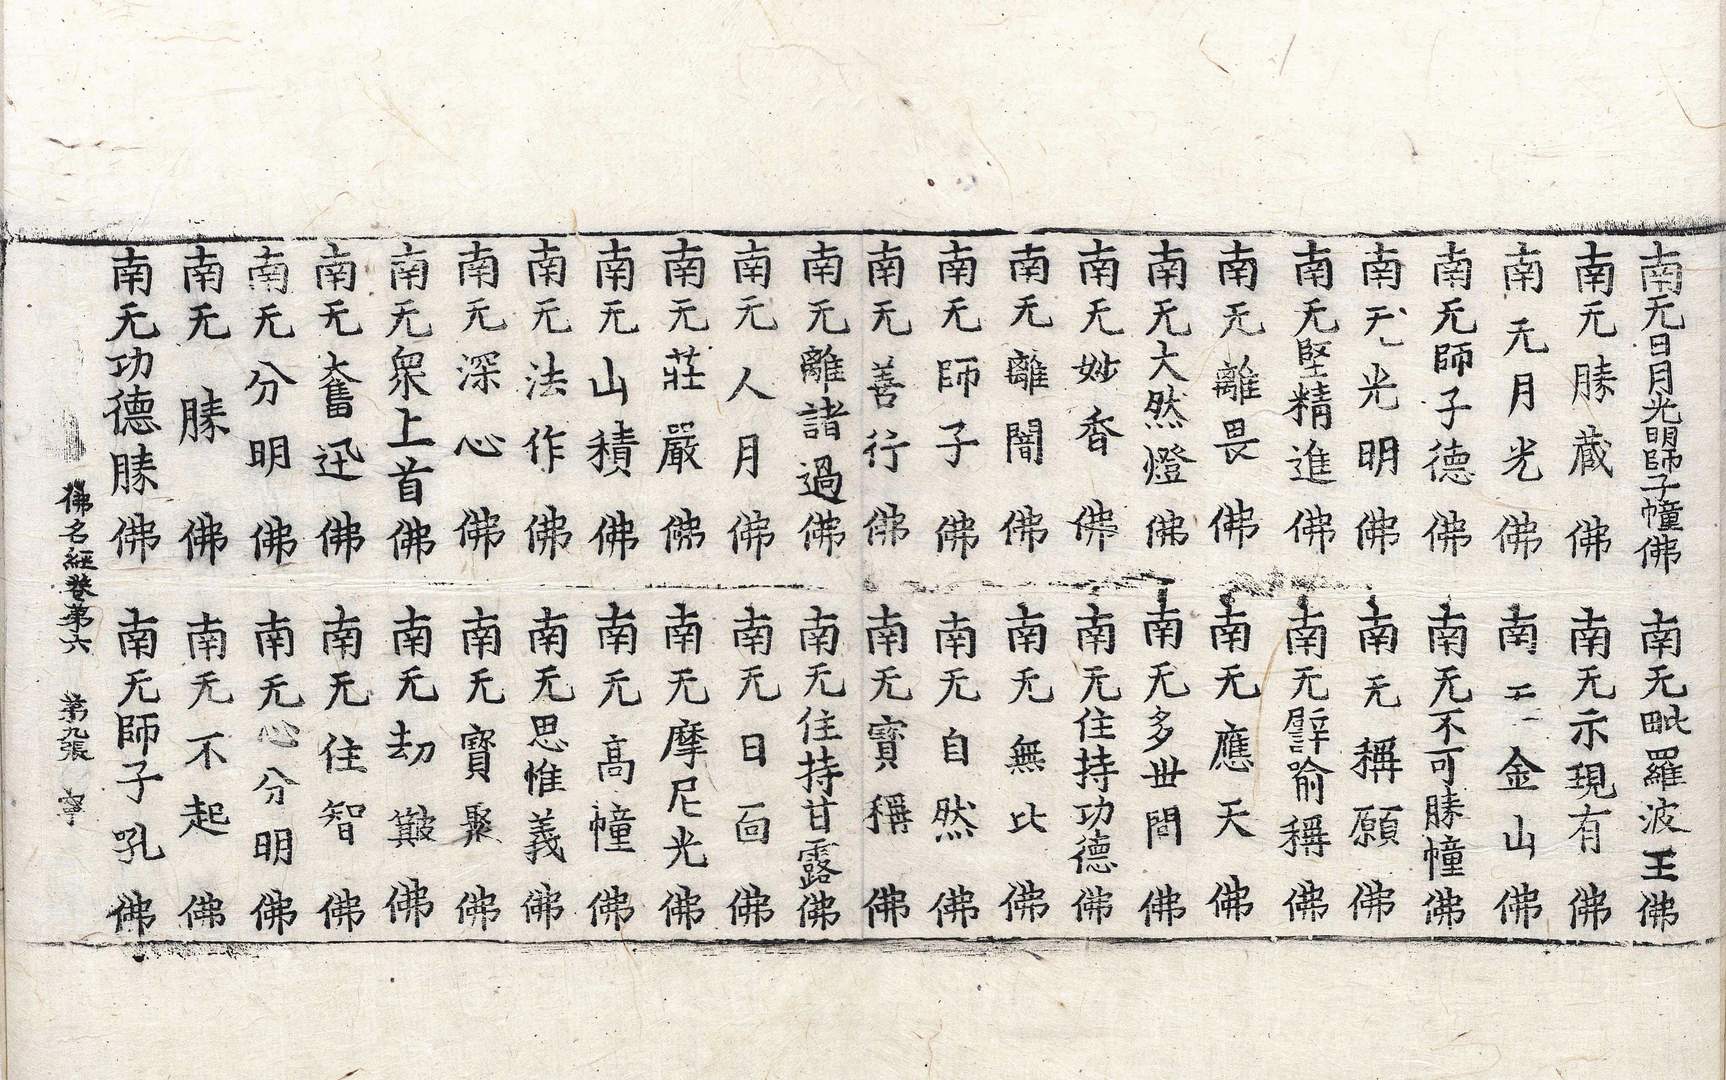 南无日月光明師子幢佛 南无毗羅波王佛
南无勝藏佛 南无示現有佛
南无月光佛 南无金山佛
南无師子德佛 南无不可勝幢佛
南无光明佛 南无稱願佛
南无堅精進佛 南无譬喻稱佛
南无離畏佛 南无應天佛
南无大然燈佛 南无多世間佛
南无妙香佛 南无住持功德佛
南无離闇佛 南无無比佛
南无師子佛 南无自然佛
南无善行佛 南无寶稱佛
南无離諸過佛 南无住持甘露佛
南无人月佛 南无日面佛
南无莊嚴佛 南无摩尼光佛
南无山積佛 南无高幢佛
南无法作佛 南无思惟義佛
南无深心佛 南无寶聚佛
南无衆上首佛 南无劫佛
南无奮迅佛 南无住智佛
南无分明佛 南无心分明佛
南无勝佛 南无不起佛
南无功德勝佛 南无師子吼佛
佛名經卷第六 第九張 寧